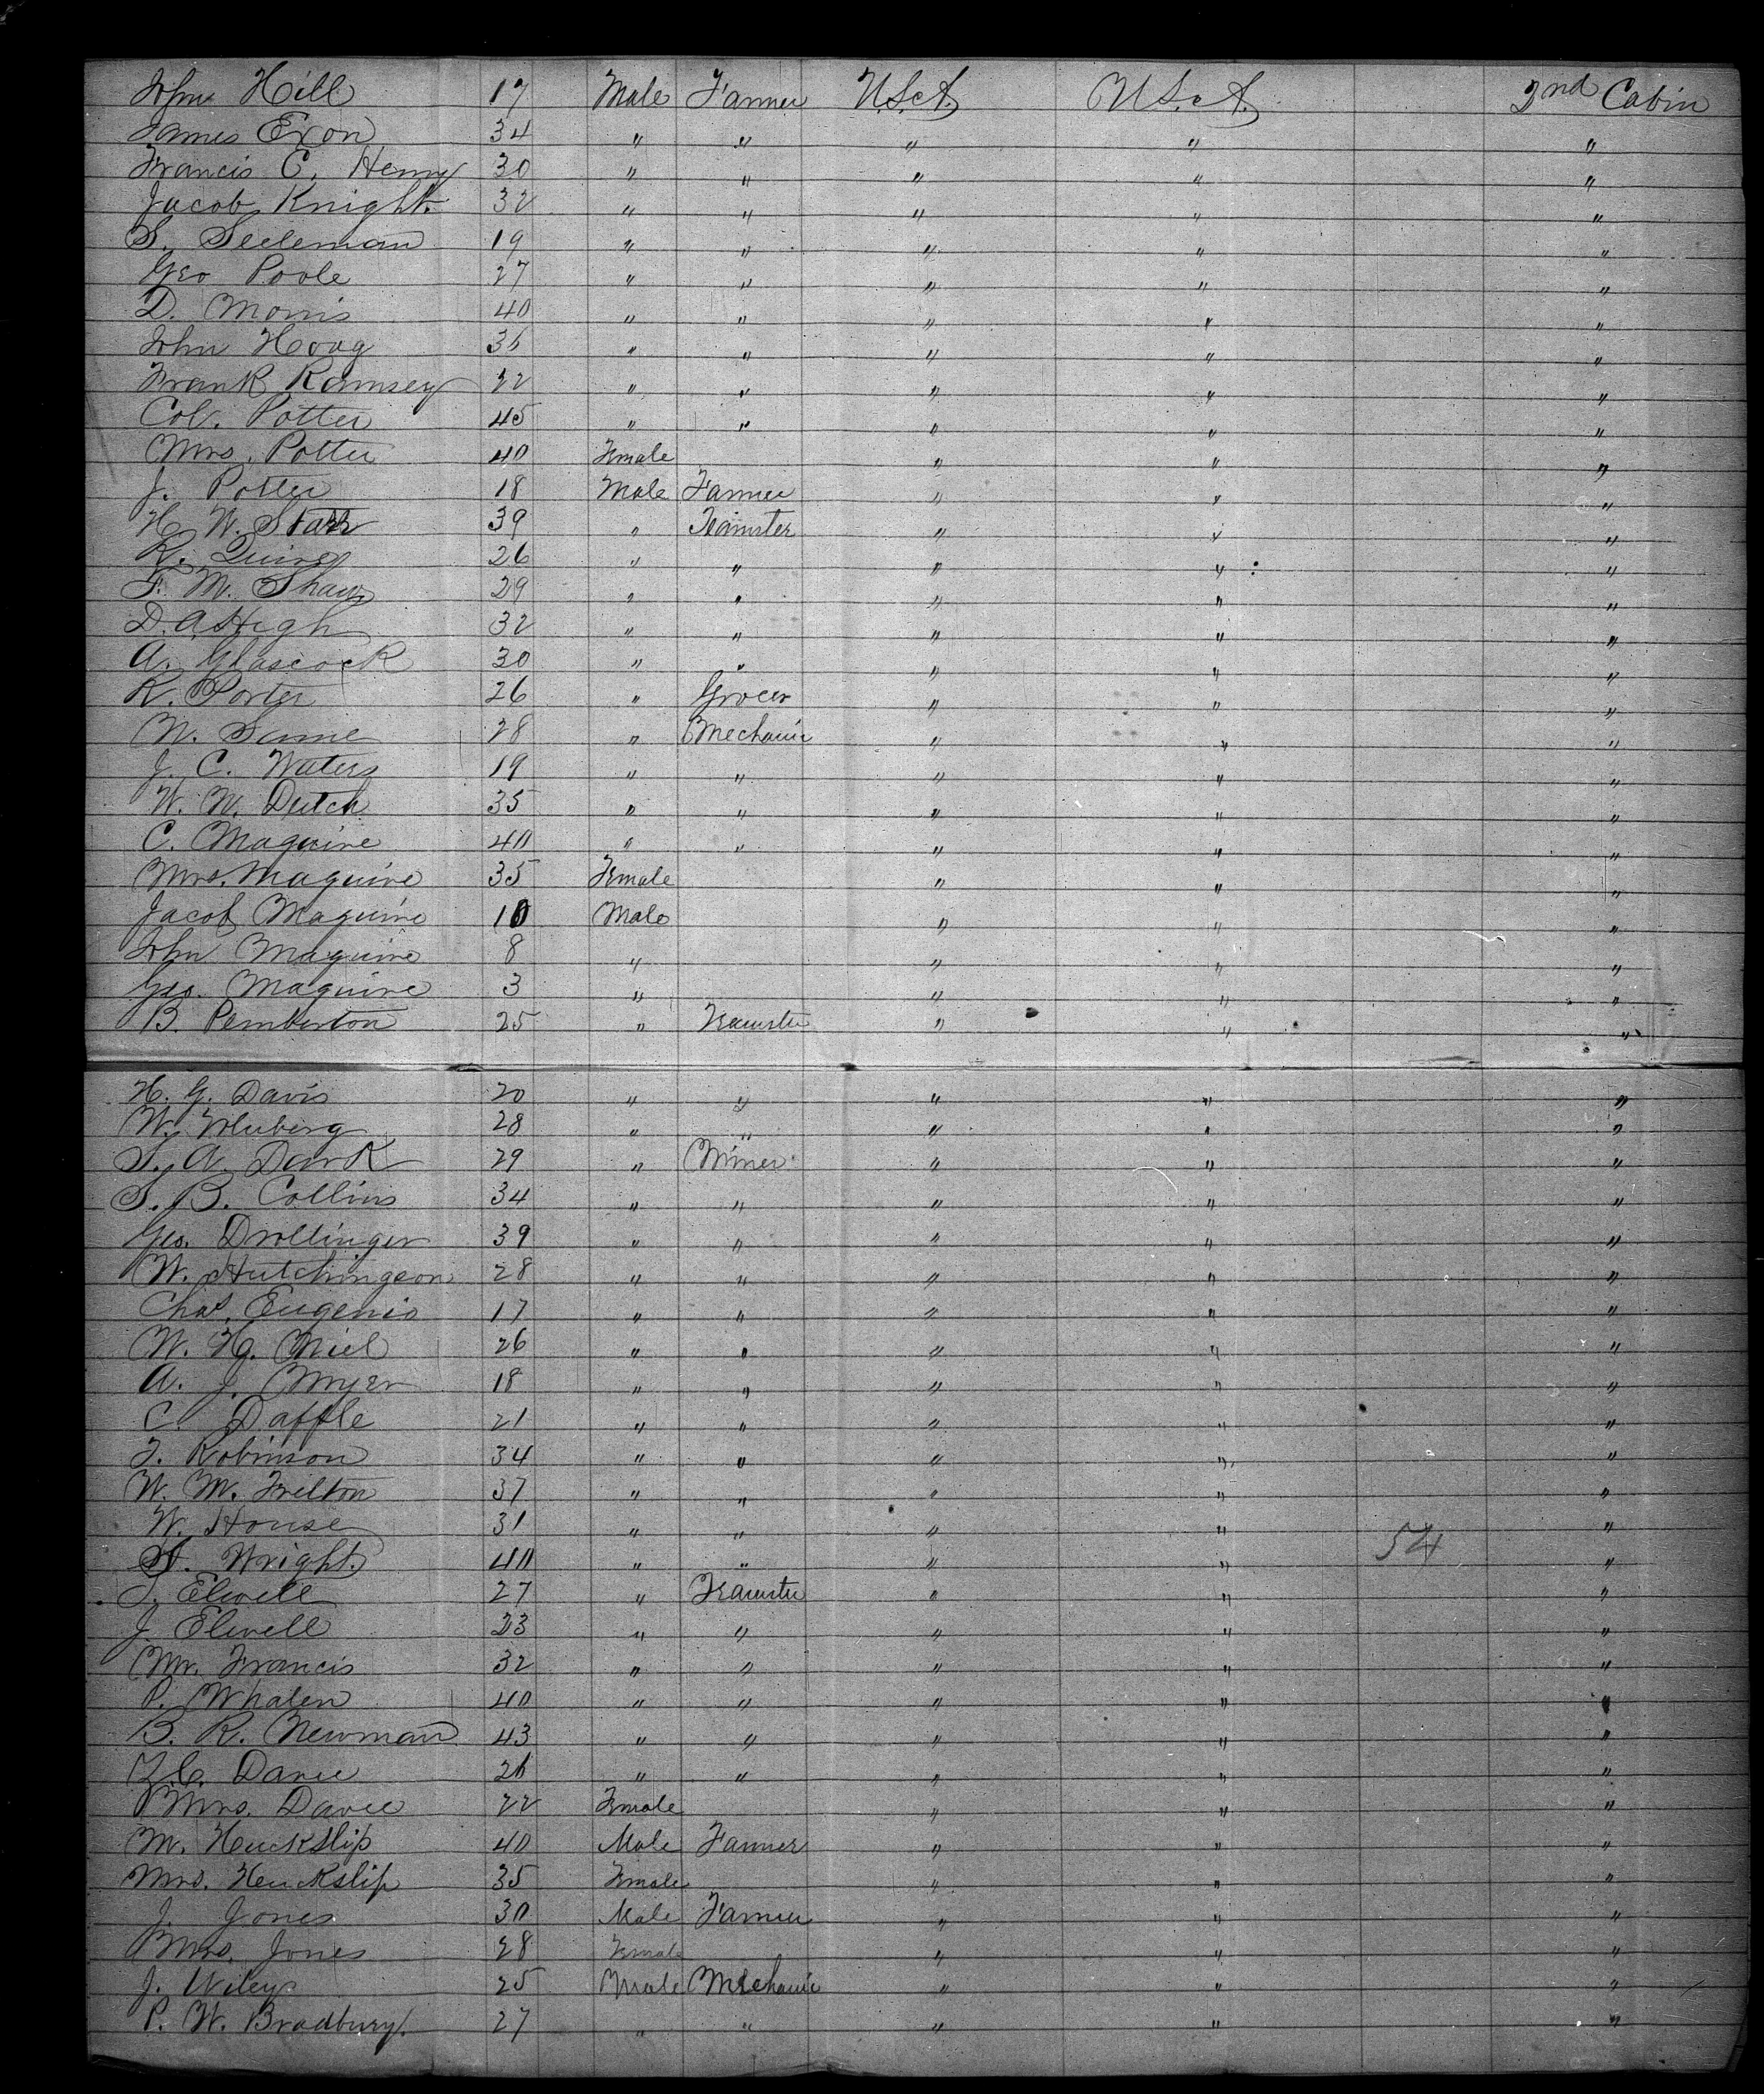 John Hill 17 Male Farmer U.S.A. U.S.A. 2nd Cabin
James Exon 34 " " " " "
Francis C. Henry 30 " " " " "
Jacob Knight 32 " " " " "
S. Seeleman 19 " " " " "
Geo Poole 27 " " " " "
D. Morris 40 " " " " "
John Hoag 36 " " " " "
Frank Ramsey 22 " " " " "
Col. Potter 45 " " " " "
Mrs. Potter 40 Female " " "
J. Potter 18 Male Farmer " " "
H. W. Starr 39 " Teamster " " "
R. 26 " " " " "
F. M. Shaw 29 " " " " "
D. A. High 32 " " " " "
A. Glascock 30 " " " " "
R. Porter 26 " Grocer " " "
W. 28 " Mechanic " " "
J. C. Waters 19 " " " " "
W. W. Dutch 35 " " " " "
C. Maguire 40 " " " " "
Mrs. Maguire 35 Female " " "
Jacob Maguire 10 Male " " "
John Maguire 8 " " " "
Geo. Maguire 3 " " " "
B. Pemberton 25 " Teamster " " "
H. G. Davis 20 " " " " "
W. 28 " " " " "
S. A. Dark 29 " Miner " " "
S. B. Collins 34 " " " " "
Geo. Drollinger 39 " " " " "
W. Hutchingson 28 " " " " "
Chas. Eugenio 17 " " " " "
W. H. Niel 26 " " " " "
A. J. Myer 18 " " " " "
C. Daffle 21 " " " " "
F. Robinson 34 " " " " "
W. M. Frilton 37 " " " " "
W. House 31 " " " " "
Wright 40 " " " " 54 "
S. Elwell 27 " Teamster " " "
J. Elwell 23 " " " " "
Mr. Francis 32 " " " " "
P. Whalen 40 " " " " "
B. R. Newman 43 " " " " "
Z. C. Davee 26 " " " " "
Mrs. Davee 22 Female " " "
M. Heuckslip 40 Male Farmer " " "
Mrs. Heuckslip 35 Female " " "
J. Jones 30 Male Farmer " " "
Mrs. Jones 28 Female " " "
J. Wiley 25 Male Mechanic " " "
P. W. Bradbury. 27 " " " " "